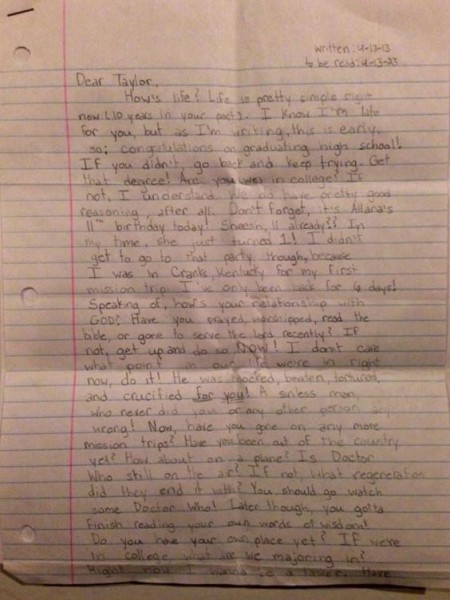 written: 4-13-13
to be read: 4-13-23
Dear Taylor,
How's life? Life is pretty simple right
now (10 years in your past). I know I'm late
for you, but as I'm writing, this is early,
so; congratulations on graduating high school!
If you didn't, go back and keep trying. Get
that degree! Are you in college? If
not, I understand. We did have pretty good
reasoning, after all. Don't forget, it's Allana's
11th birthday today! Sheesh, 11 already?! In
my time, she just turned 1! I didn't
get to go to that party though, because
I was in Cranks, Kentucky for my first
mission trip. I've only been back for 6 days!
Speaking of, how's your relationship with
GOD? Have you prayed, worshipped, read the
bible, or gone to serve the lord recently? If
not, get up and do so NOW! I don't care
what point in our life we're in right
now, do it! He was mocked, beaten, tortured,
and crucified for you! A sinless man,
who never did you or any other person any
wrong! Now, have you gone on any more
mission trips? Have you been out of the country
yet? How about on a plane? Is Doctor
Who still on the air? If not, what regeneration
did they end it with? You should go watch
some Doctor Who! Later though, you gotta
finish reading your own words of wisdom!
Do you have your own place yet? If we're
in college, what are we majoring in?
Right now I wanna be a lawer. Have